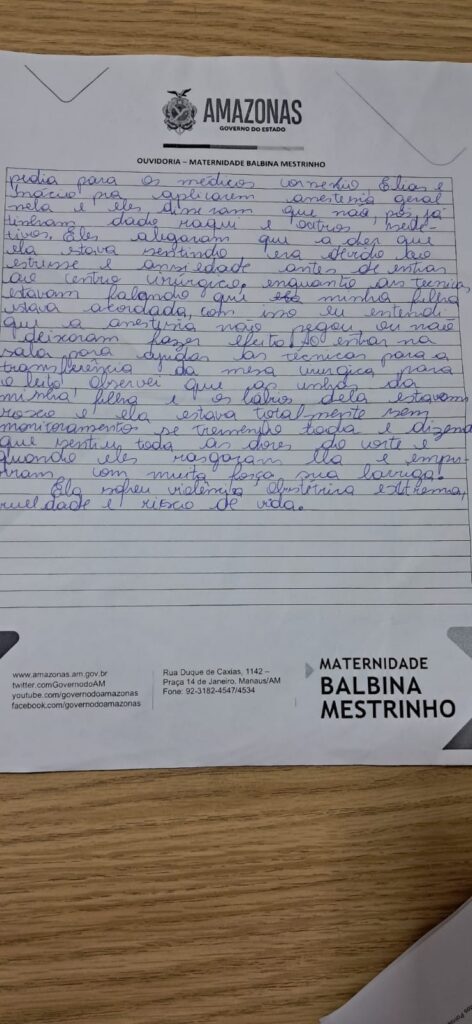 AMAZONAS
GOVERNO DO ESTADO
OUVIDORIA – MATERNIDADE BALBINA MESTRINHO
pedia para os médicos Elias e
pra aplicarem anestesia geral
nela e eles disseram que não, pois já
tinham dado raqui e outros
Eles alegaram que a dor que
ela estava sentindo era devido ao
estresse e ansiedade antes de entrar
ao centro cirúrgico. enquanto as técnicas
estavam falando que minha filha
estava acordada, com isso eu entendi
que a anestesia não pegou, ou não
deixaram fazer efeito. Ao entrar na
sala para ajudar as técnicas para a
transferência da mesa cirurgica para
o leito, observei que as unhas da
minha filha e os lábios dela estavam
roxo e ela estava totalmente sem
monitoramento se tremendo toda e dizendo
que sentiu toda as dores do corte e
quando eles rasgaram ela e empu-
rram com muita força sua barriga!
Ela sofreu violência obstetrica extrema,
crueldade e risco de vida.
www.amazonas.am.gov.br
twitter.com/GovernodoAM
youtube.com/governodoamazonas
facebook.com/governodoamazonas
Rua Duque de Caxias, 1142 –
Praça 14 de Janeiro. Manaus/AM
Fone: 92-3182-4547/4534
MATERNIDADE
BALBINA
MESTRINHO